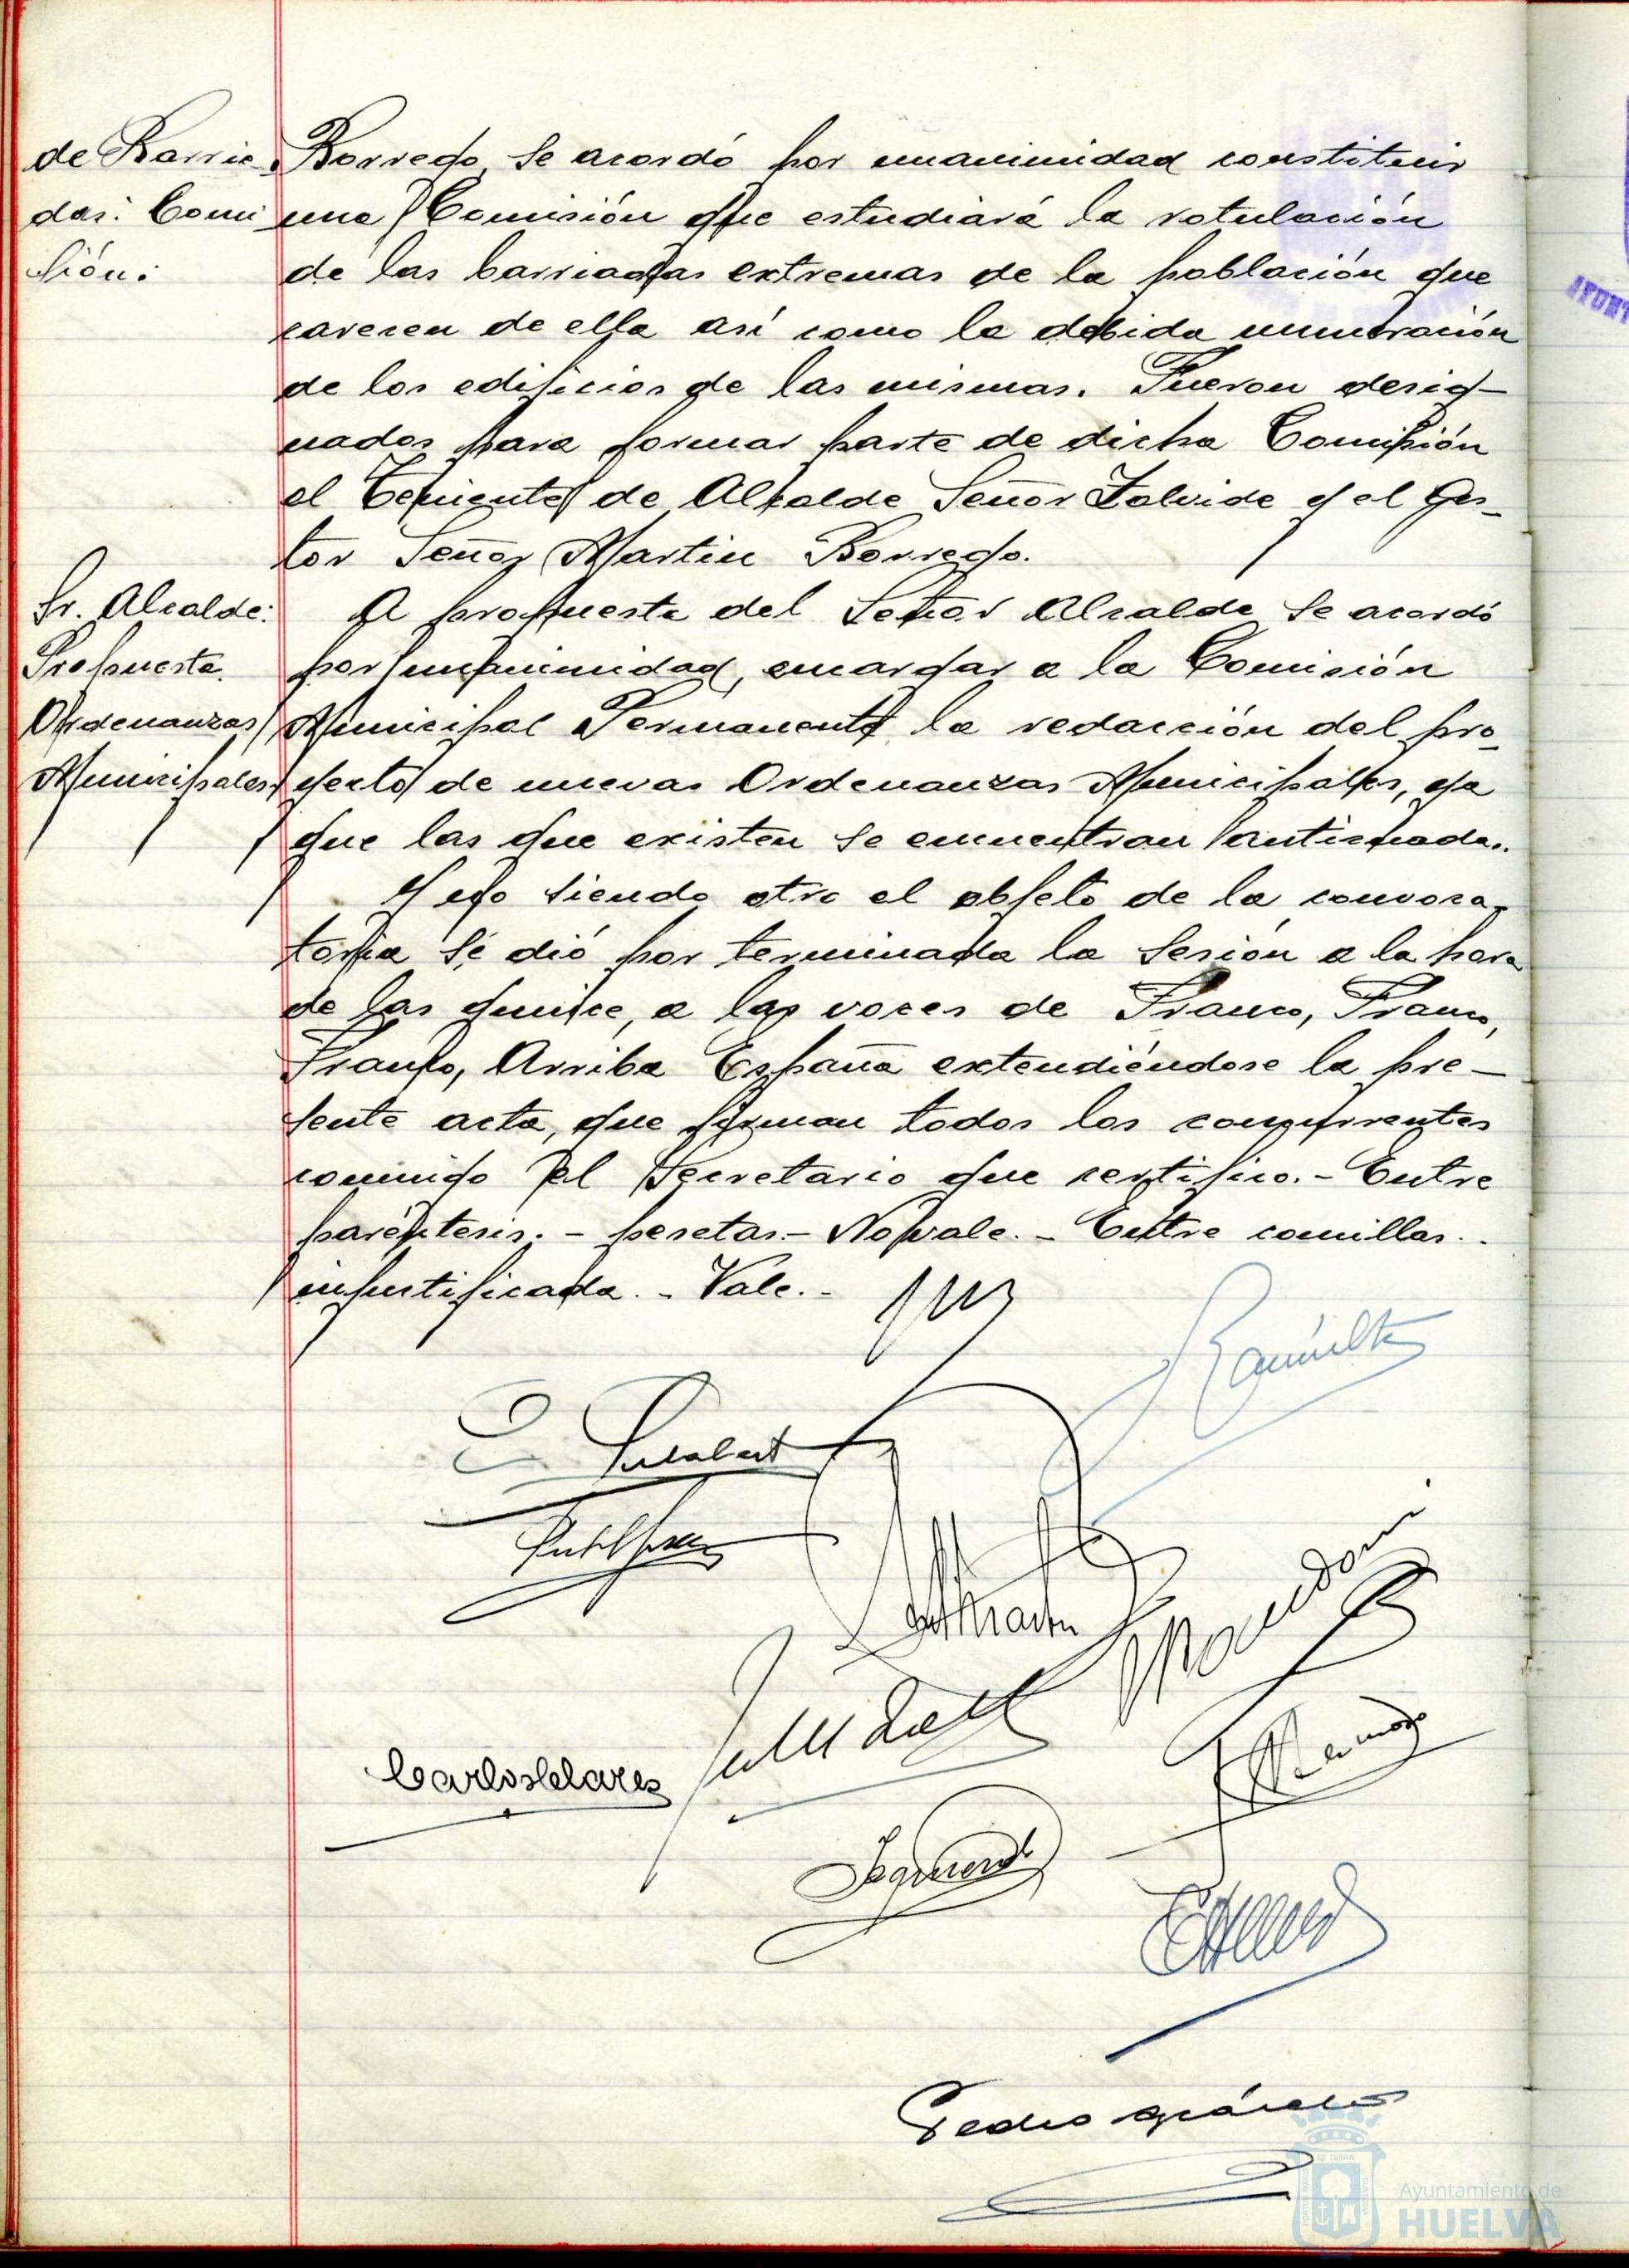 de Barria
das: Comi
sión:
Borrego se acordó por unanimidad constituir
una Comisión que estudiará la rotulación
de las barriadas extremas de la población que
carecen de ella así como la debida numeración
de los edificios de las mismas. Fueron desig-
nados para formar parte de dicha Comisión
el Teniente de Alcalde Señor Zalvide y el Ges-
tor Señor Martin Borrego.
Sr. Alcalde:
Propuesta.
Ordenanzas
Municipales
A propuesta del Señor Alcalde se acordó
por unanimidad, encargar a la Comisión
Municipal Permanente la redacción del pro-
yecto de nuevas Ordenanzas Municipales, ya
que las que existen se encuentran anticuadas.
Y no siendo otro el objeto de la convoca-
toria se dió por terminada la sesión a la hora
de las quince, a las voces de Franco, Franco,
Franco, Arriba España extendiéndose la pre-
sente acta, que firman todos los concurrentes
conmigo el Secretario que certifico.- Entre
paréntesis.- pesetas.- No vale.- Entre comillas..
injustificada.- Vale.-
Carlos
Izquierdo
Pedro
AYUNT
Ayuntamiento de
HUELVA